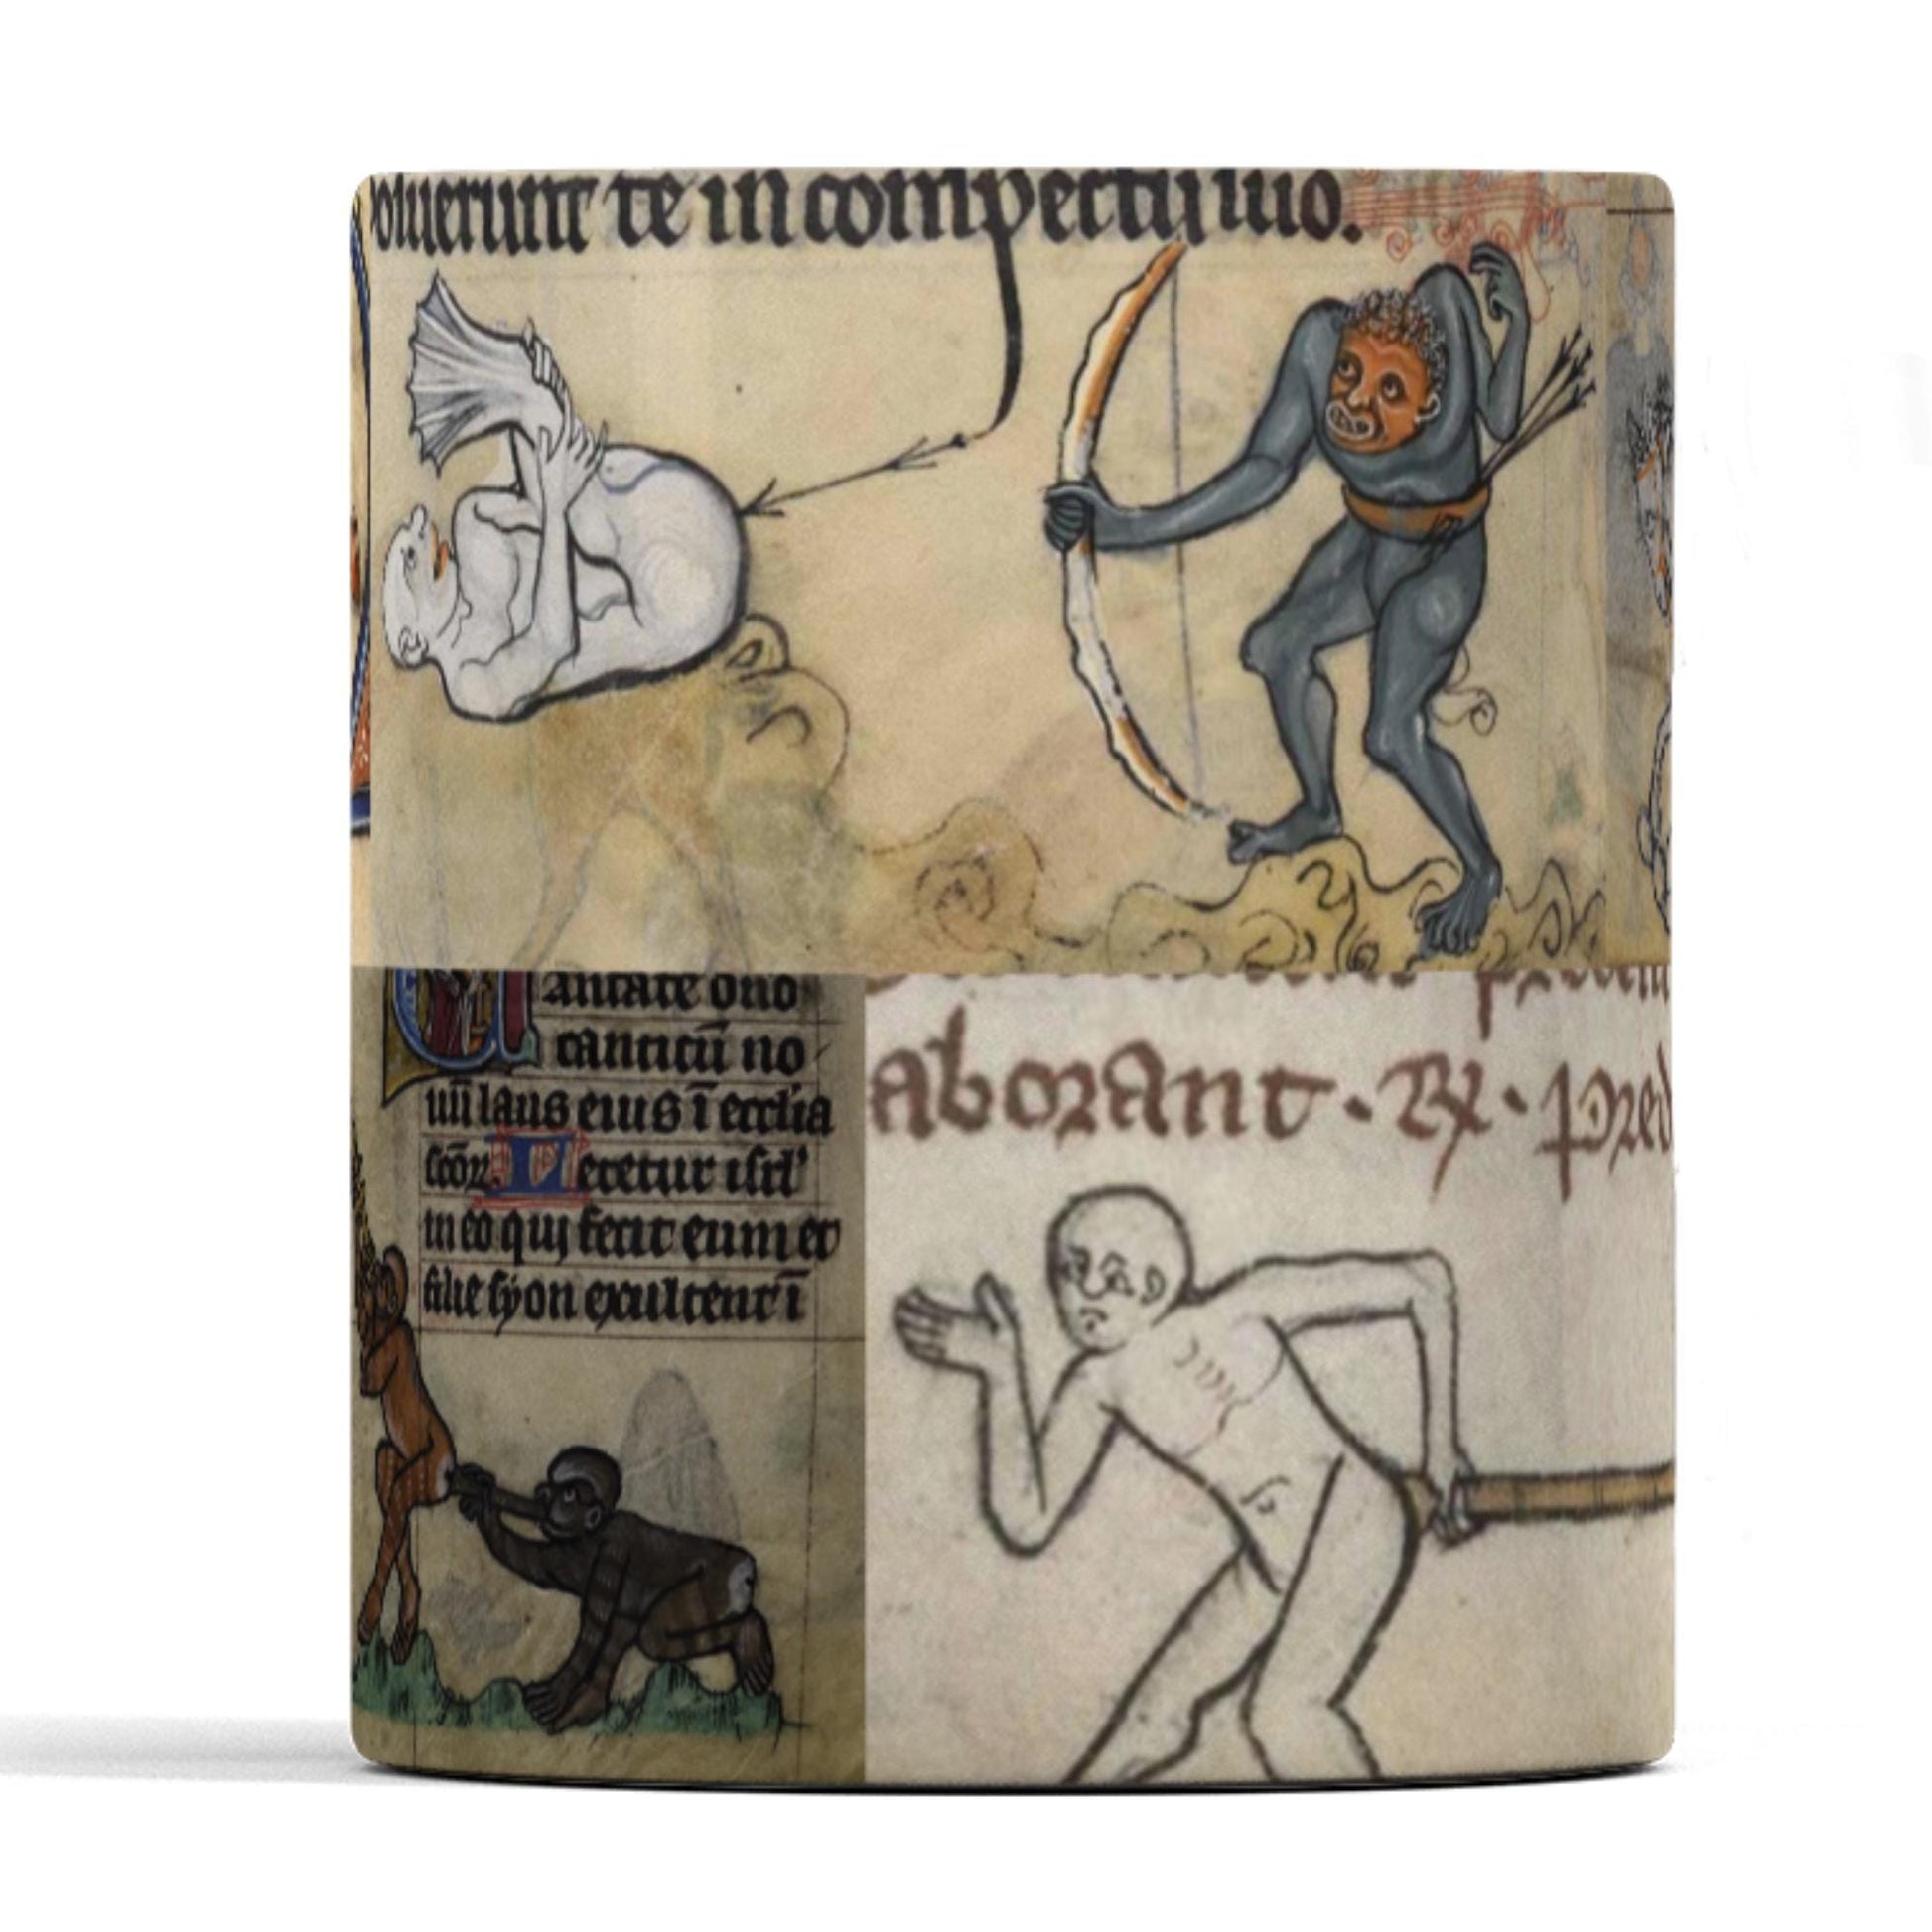 osuerunt te in conspectu suo.
antate dno
canticū no
uū laus eius ī ecclia
scōꝝ Letetur isrl'
in eo qui fecit eum et
filie syon exultent ī
aborant · Rx · pred